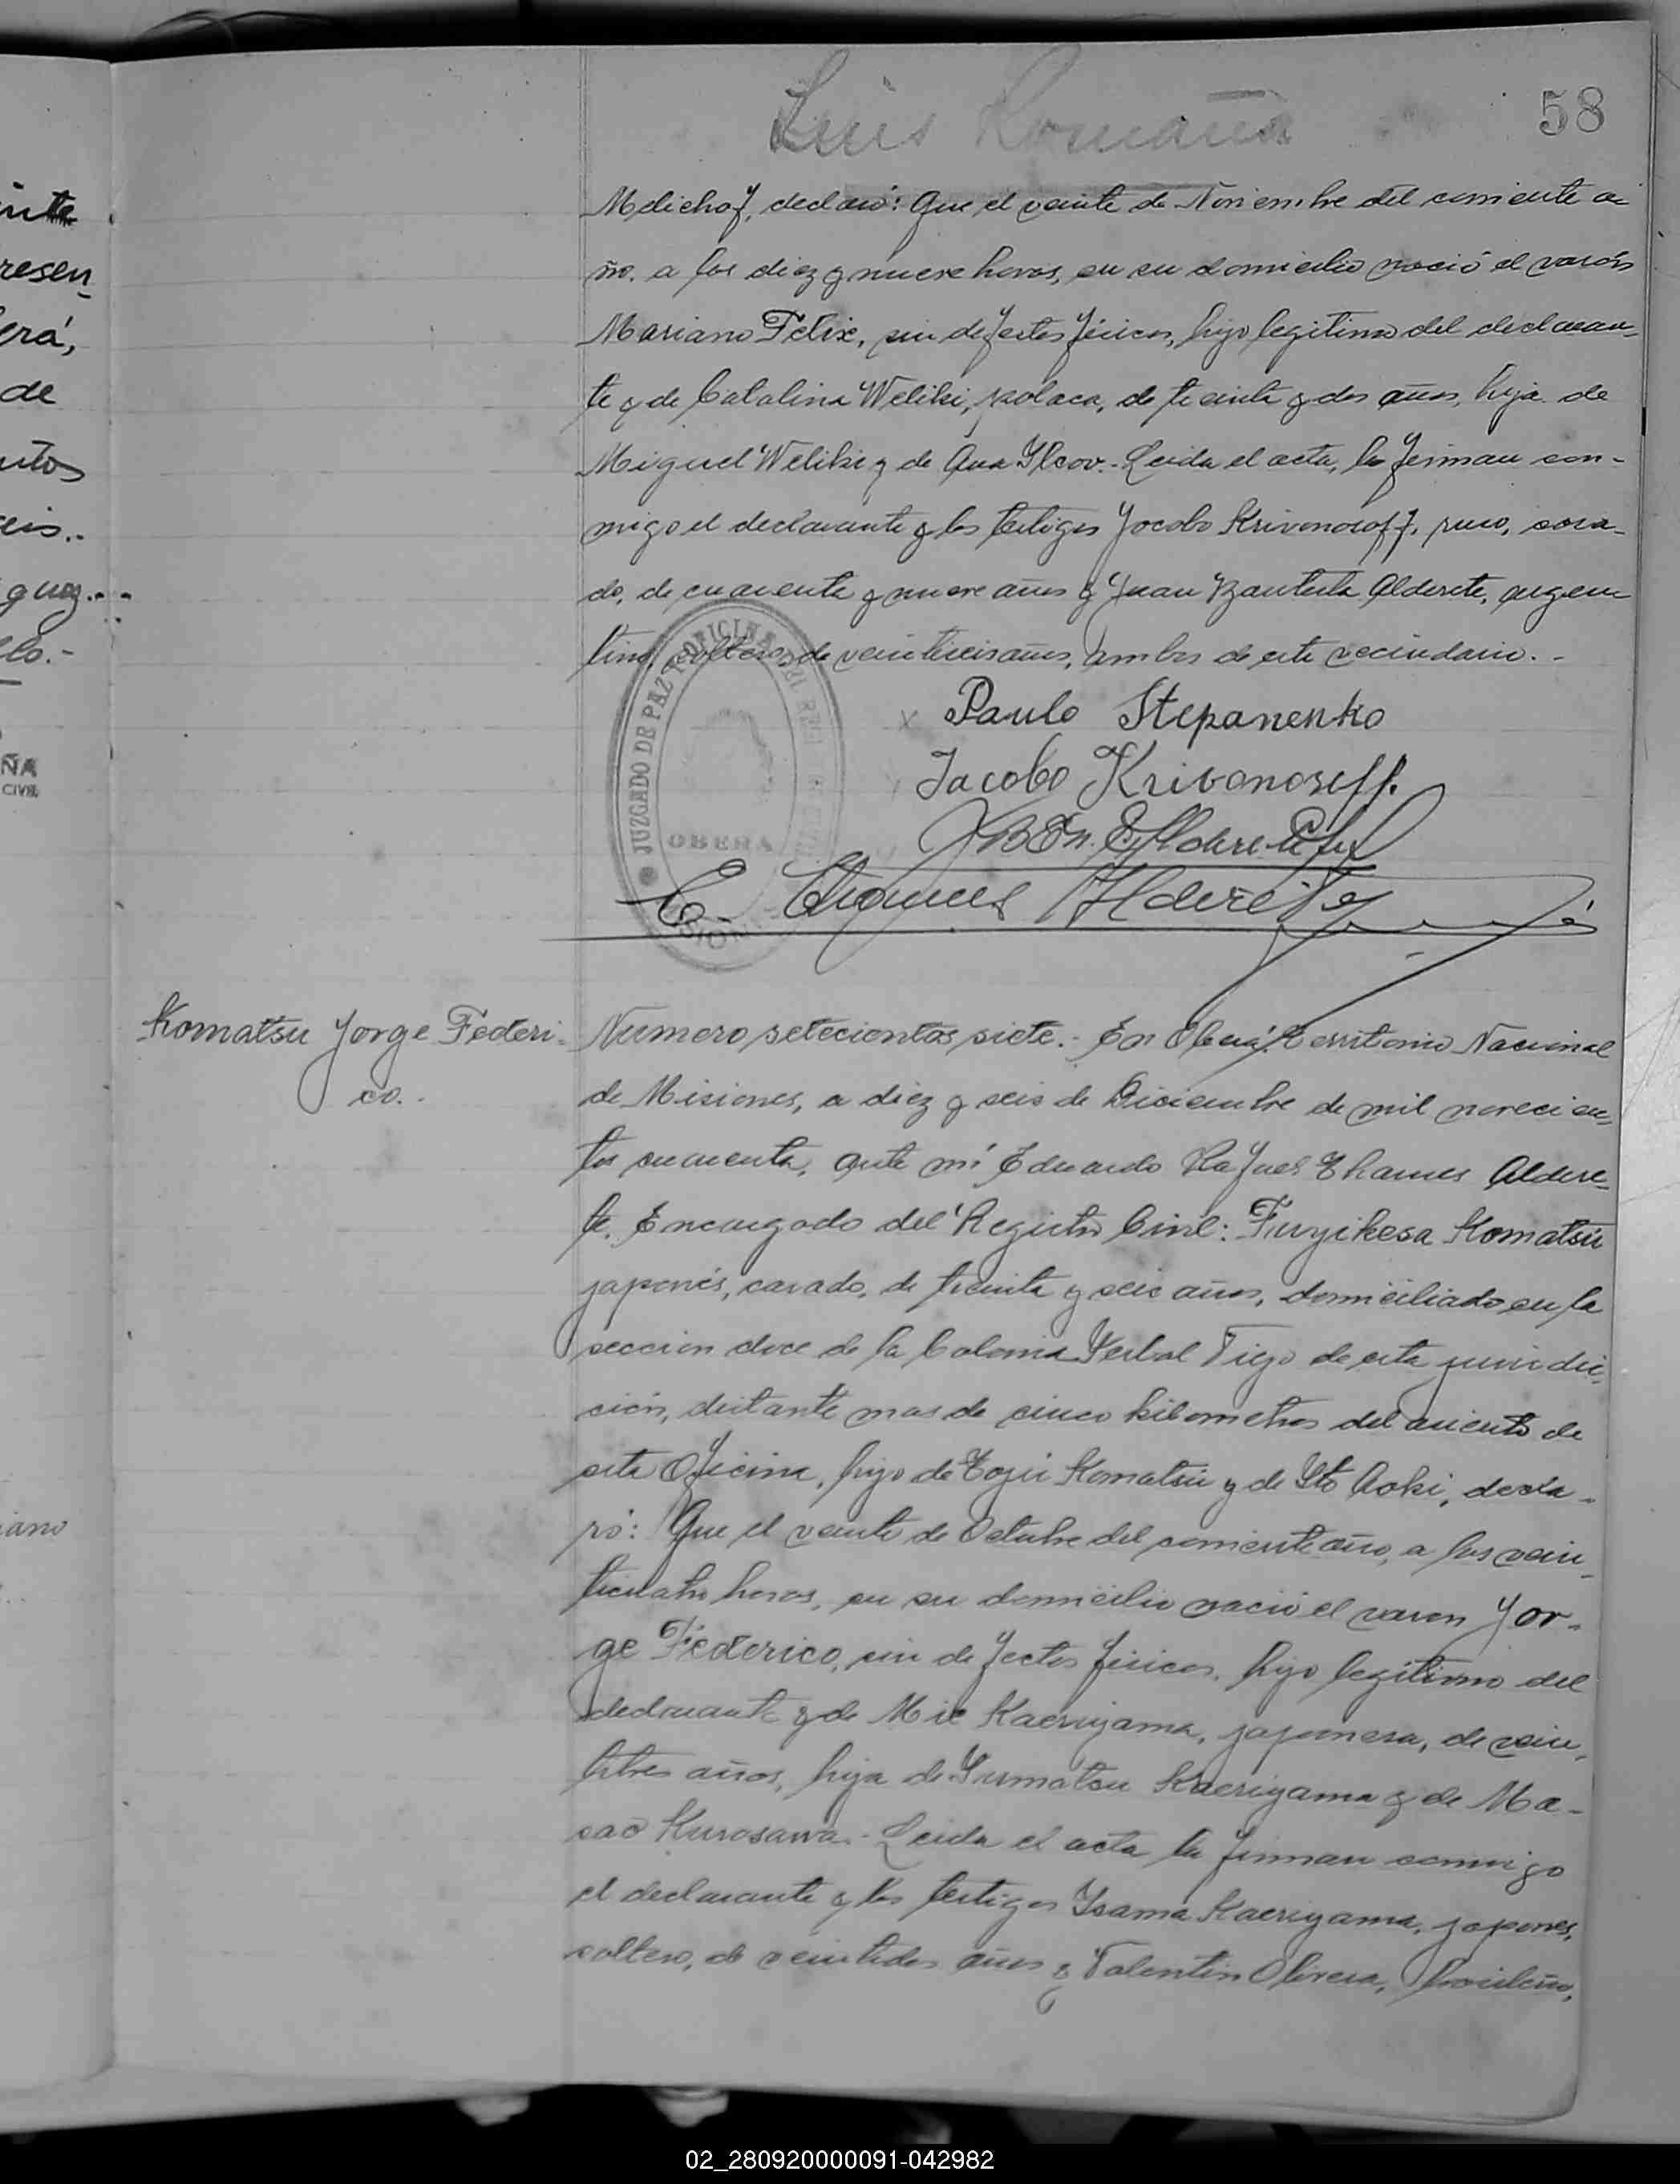 Luis Romaña
58
Melichof, declaró: Que el veinte de Noviembre del corriente a-
ño, a las diez y nueve horas, en su domicilio nació el varón
Mariano Felix, sin defectos físicos, hijo legitimo del declaran-
te y de Catalina Weliki, polaca, de treinta y dos años, hija de
Miguel Weliki y de Ana Ylcov.- Leida el acta, la firman con-
migo el declarante y los testigos Jacobo Krivonosoff, ruso, casa-
do, de cuarenta y nueve años y Juan Bautista Alderete, argen-
tino, soltero, de veintiseis años, ambos de este vecindario.-
Paulo Stepanenko
Jacobo Krivonosoff.
JUZGADO DE PAZ Y OFICINA DEL REGI
OBERA
E. Thames Alderete
Komatsu Jorge Federi-
co.-
Numero setecientos siete.- En Oberá, Territorio Nacional
de Misiones, a diez y seis de Diciembre de mil novecien-
tos cincuenta, ante mí Eduardo Thames Aldere-
te, Encargado del Registro Civil: Fuyikesa Komatsu
japonés, casado, de treinta y seis años, domiciliado en la
sección doce de la Colonia Yerbal Viejo de esta jurisdic-
ción, distante mas de cinco kilometros del asiento de
esta Oficina, hijo de Komatsu y de Ito Aoki, decla-
ró: Que el veinte de Octubre del corriente año, a las vein-
ticuatro horas, en su domicilio nació el varon Jor-
ge Federico, sin defectos físicos, hijo legitimo del
declarante y de Mie Kaeriyama, japonesa, de vein-
titres años, hija de Kaeriyama y de Ma-
sao Kurosawa.- Leida el acta la firman conmigo
el declarante y los testigos Ysama Kaeriyama, japones,
soltero, de veintidos años y Valentin Olivera, brasileño,
inte
resen-
erá,
de
ntos
eis..
guez..
lo.-
ÑA
CIVIL
iano
02_280920000091-042982